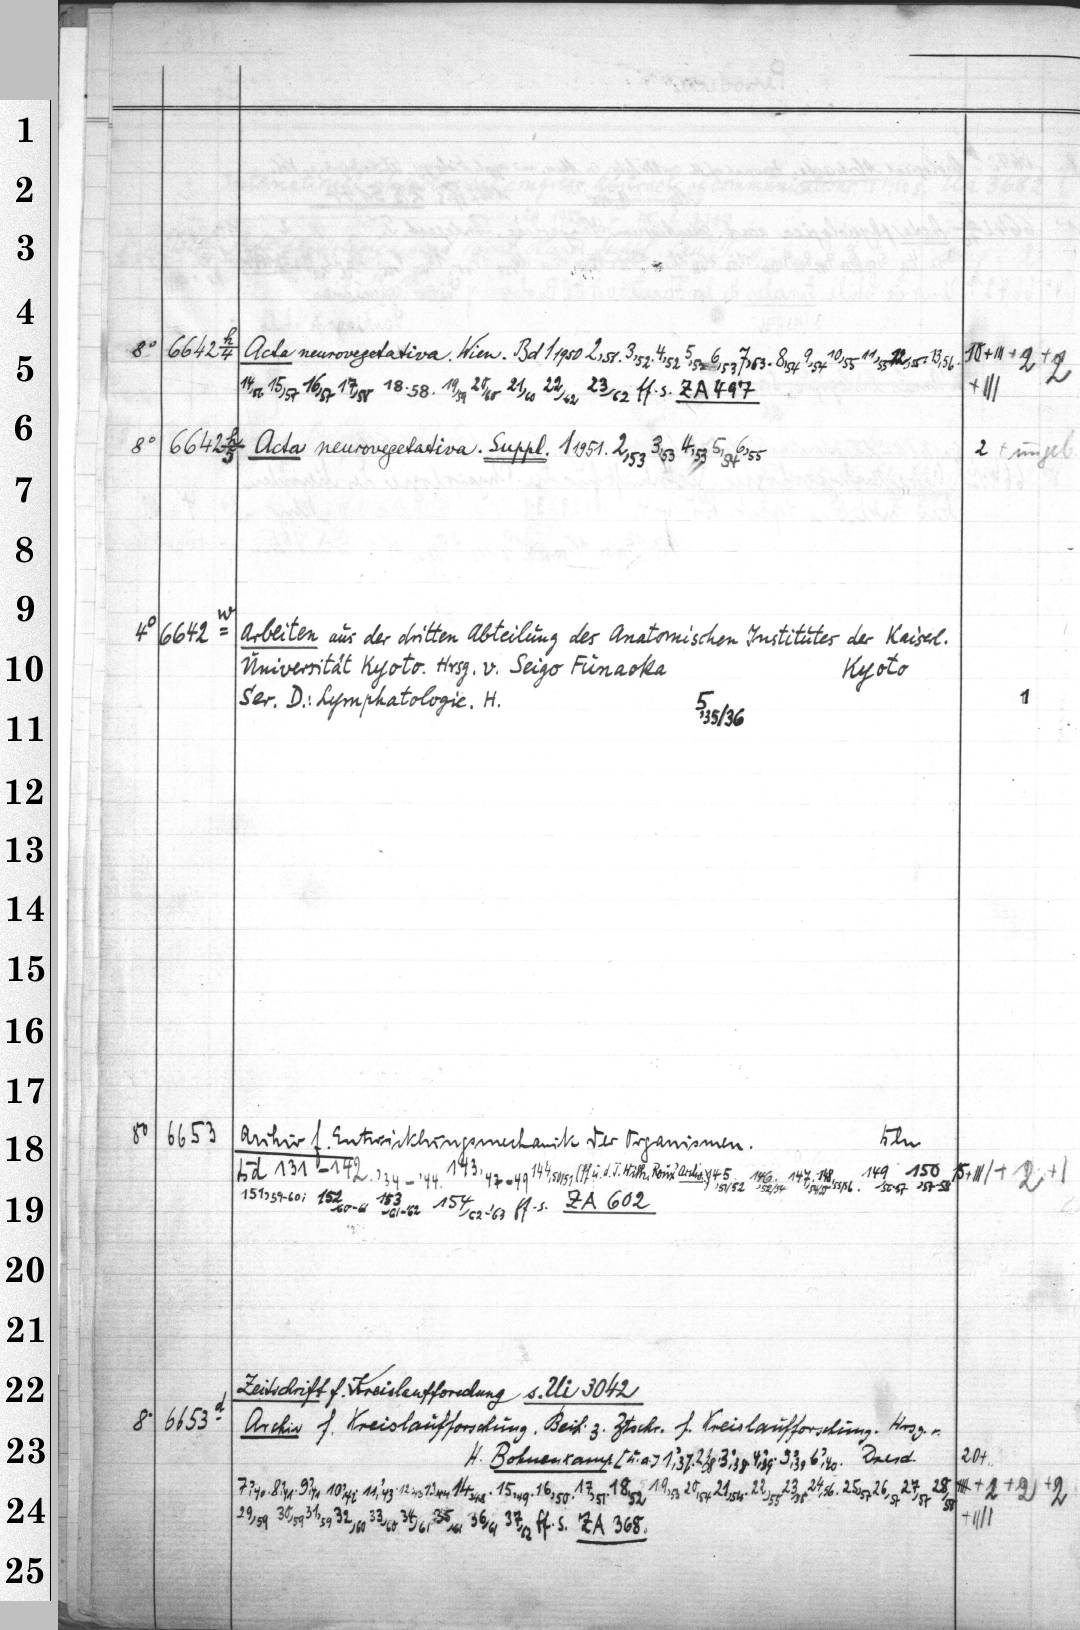 1
2
3
4
8° 6642 h/4 Acta neurovegetativa. Wien. Bd 1 1950 2,51. 3,52. 4,52 5,52 6,53 7,53. 8,54 9,54 10,55 11,55 12,55. 13,56. 10+III+2+2
5
14,56 15,57 16,57 17,58 18.58. 19,59 20,60 21,60 22,62 23,62 ff. s. ZA 497 +III
6
8° 6642 h/5 Acta neurovegetativa. Suppl. 1 1951. 2,53 3,53 4,53 5,54 6,55 2 + ungeb
7
8
9
4° 6642 w Arbeiten aus der dritten Abteilung des Anatomischen Institutes der Kaiserl.
10
Universität Kyoto. Hrsg. v. Seigo Funaoka Kyoto
Ser. D.: Lymphatologie. H. 5,35/36 1
11
12
13
14
15
16
17
8° 6653 Archiv f. Entwicklungsmechanik der Organismen. Bln
18
Bd 131–142,'34–'44. 143,47–49 144,50/51 145,51/52 146,52/54 147,54/55 148,55/56. 149,56-57 150,57-58
19
151,59-60; 152,60-61 153,61-62 154,62-'63 ff. s. ZA 602
20
21
22
Zeitschrift f. Kreislaufforschung s. Ui 3042
8° 6653 d Archiv f. Kreislaufforschung. Beih. z. Ztschr. f. Kreislaufforschung. Hrsg. v.
23
H. Bohnenkamp [u.a.] 1,37. 2,38 3,38 4,39. 5,39 6,40. Dresd. 20+
7,40. 8,41. 9,41 10,42 11,43 14,48. 15,49. 16,50. 17,51 18,52 19,53 20,54 21,54. 22,55 23,55 24,56. 25,57 26,57 27,57 28,58 +2+2+2
24
29,59 30,59 31,59 32,60 33,60 34,61 35,61 36,61 37,62 ff. s. ZA 368. +IIII
25